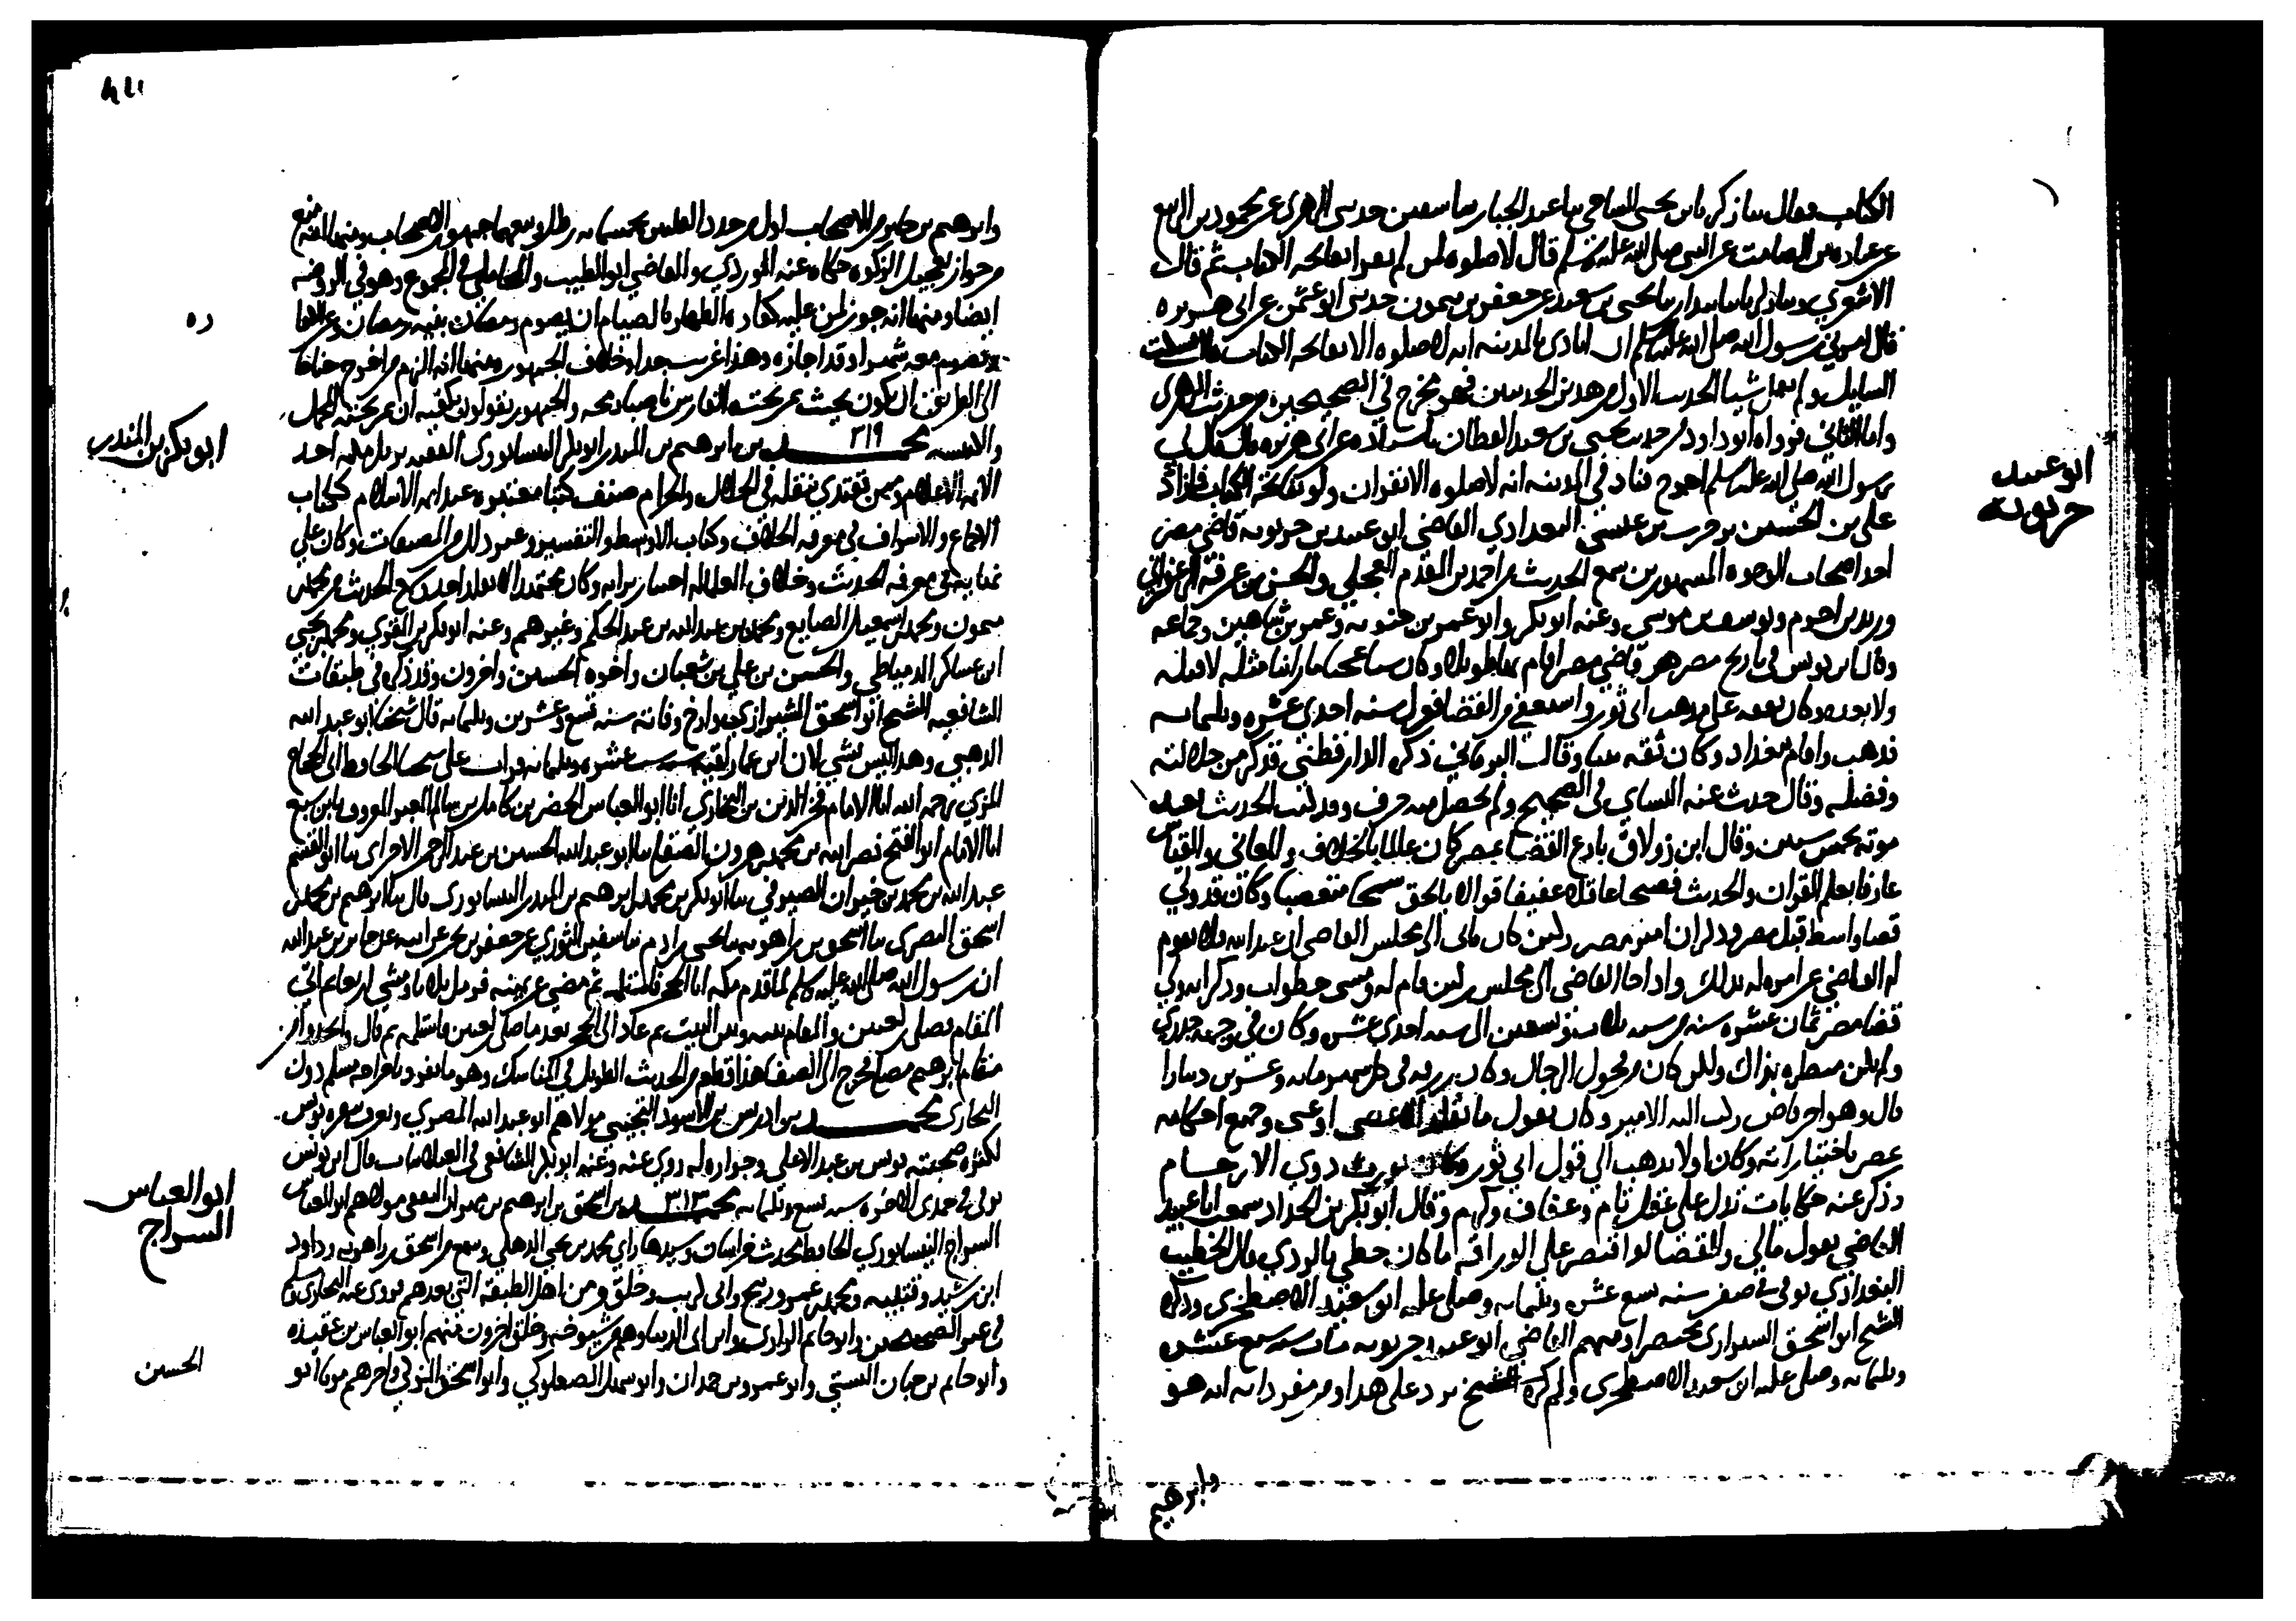 الكتاب فقال بنا زكريا بن يحيى الساجي بنا عبد الجبار بنا سفين حدثني الزهري عن محمود بن الربيع
عن عباده بن الصامت عن النبي صلى الله عليه وسلم قال لا صلوه لمن لم يقرا بفاتحه الكتاب ثم قال
الاشعري وبنا زكريا بنا بندار بنا يحيى بن سعيد عن جعفر بن ميمون حدثني ابو عثمن عن ابي هريره
قال امرني رسول الله صلى الله عليه وسلم ان انادي بالمدينه انه لا صلوه الا بفاتحه الكتاب
السايل ولم يقل شيا الحديث الاول من هذين الحديثين فهو مخرج في الصحيحين من حديث الزهري
واما الثاني فرواه ابو داود من حديث يحيى بن سعيد القطان باسناده عن ابي هريره قال قال لي
رسول الله صلى الله عليه وسلم اخرج فناد في المدينه انه لا صلوه الا بقران ولو بفاتحه الكتاب فما زاد
ابو عبيد
حربويه
علي بن الحسين بن حرب بن عيسى البغدادي القاضي ابو عبيد بن حربويه قاضي مصر
احد اصحاب الوجوه المشهورين سمع الحديث من احمد بن المقدم العجلي والحسن بن عرفة والزعفراني
وزيد بن اخزم ويوسف بن موسى وعنه ابو بكر وابو عمر بن حيويه وعمر بن شاهين وجماعه
وقال ابن يونس في تاريخ مصر هو قاضي مصر اقام بها طويلا وكان شيا عجبا ما راينا مثله لا قبله
ولا بعده وكان يتفقه على مذهب ابي ثور واستعفى من القضا فعزل سنه احدى عشره وثلثمايه
فذهب واقام ببغداد وكان ثقه ثبتا وقال البرقاني ذكره الدارقطني فذكر من جلالته
وفضله وقال حدث عنه النساي في الصحيح ولم يحصل منه حرف وقد كتب الحديث بعد
موته بخمس سنين وقال ابن زولاق بارع القضا بمصر كان عالما بالخلاف والمعاني والقياس
عارفا بعلم القران والحديث فصيحا عاقلا عفيفا قوالا بالحق سمحا متعصبا وكان قد ولي
قضا واسط قبل مصر وذكر ان امير مصر تكين كان ياتي الى مجلس القاضي ابي عبيد فلا يقوم
له القاضي عن امره له بذلك واذا جا القاضي الى مجلس تكين قام له ومشى خطوات وذكر انه ولي
قضا مصر ثمان عشره سنه من سنه ثلاث وتسعين الى سنه احدى عشره وكان في وجهه جدري
ولم يكن منظره بذاك ولكن كان من فحول الرجال وكان يرزق في كل شهر مايه وعشرين دينارا
قال وهو اخر قاض ركب اليه الامير وكان يقول ما يقلد الا عصي او غبي وجميع احكامه
بمصر باختياراته وكان اولا يذهب الى قول ابي ثور وكان يورث ذوي الارحام
وذكر عنه حكايات تدل على عقل تام وعفاف وكرم وقال ابو بكر بن الحداد سمعت ابا عبيد
القاضي يقول مالي وللقضا لو اقتصرعلى الوراقه ما كان خطي بالردي قال الخطيب
البغدادي توفي في صفر سنه تسع عشره وثلثمايه وصلى عليه ابو سعيد الاصطخري وذكره
الشيخ ابو اسحق الشيرازي مختصرا ومنهم القاضي ابو عبيد بن حربويه مات سنه تسع عشره
وثلثمايه وصلى عليه ابو سعيد الاصطخري ولم يذكره الشيخ يزد على هذا ومن مفرداته انه هو
وابرهيم
وابرهيم بن جابر من الاصحاب اول من حدد القلتين بخمسمايه رطل وتبعهما جمهور الاصحاب ومنها انه منع
من جواز تعجيل الزكوه حكاه عنه الماوردي والقاضي ابو الطيب والمحاملي في المجموع وهو في الروضه
ايضا ومنها انه جوز لمن عليه كفاره الظهار بالصيام ان يصوم رمضان بنيه رمضان وعن الكفاره
ويصوم معه شهرا وقد اجازه وهذا غريب جدا وخلاف الجمهور ومنها انه الزم من اخرج جناحا
الى الطريق ان يكون بحيث يمر تحته الفارس ناصبا رمحه والجمهور يقولون يكفيه ان يمر تحته المحمل
والكنيسه
ابو بكر بن المنذر
٣١٩
محمد بن ابرهيم بن المنذر ابو بكر النيسابوري الفقيه نزيل مكه احد
الايمه الاعلام وممن يقتدى بنقله في الحلال والحرام صنف كتبا معتبره عند ايمه الاسلام ككتاب
الاجماع والاشراف في معرفه الخلاف وكتاب الاوسط والتفسير وغير ذلك من المصنفات وكان على
نهايه في معرفه الحديث وخلاف العلما له اختيارا ته وكان مجتهدا لا يقلد احدا سمع الحديث من محمد بن
ميمون ومحمد بن اسمعيل الصايغ ومحمد بن عبد الله بن عبد الحكم وغيرهم وعنه ابو بكر بن المقري ومحمد بن يحيى
ابن عساكر الدمياطي والحسن بن علي بن شعبان واخوه الحسين واخرون وقد ذكره في طبقات
الشافعيه الشيخ ابو اسحق الشيرازي وارخ وفاته سنه تسع وعشرين وثلثمايه قال شيخنا ابو عبد الله
الذهبي وهذا ليس بشي لان ابن عمار لقيه سنه ست عشره وثلثمايه قرات على شيخنا الحافظ ابي الحجاج
المزي رحمه الله انا الامام فخر الدين بن البخاري انا ابو العباس الخضر بن كامل بن سالم المعبر المعروف بابن سبيع
انا الامام ابو الفتح نصر الله بن محمد بنا ابو عبد الله الحسين بن عبد الرحمن بنا ابو القسم
عبد الله بن محمد بن خيران الصيرفي بنا ابو بكر محمد بن ابرهيم بن المنذر النيسابوري قال بنا ابرهيم بن محمد بن
اسحق البصري بنا اسحق بن راهويه بنا يحيى بن ادم بنا سفين الثوري عن جعفر بن محمد عن ابيه عن جابر بن عبد الله
ان رسول الله صلى الله عليه وسلم لما قدم مكه اتا الحجر فاستلمه ثم مضى عن يمينه فرمل ثلاثا ومشى اربعا ثم اتى
المقام فصلى ركعتين والمقام بينه وبين البيت ثم عاد الى الحجر بعد ما صلى ركعتين فاستلمه ثم قال واتخذوا من
مقام ابرهيم مصلى فخرج الى الصفا هذا قطعه من الحديث الطويل في المناسك وهو ما تفرد باخراجه مسلم دون
البخاري
محمد بن ادريس بن الاسود التجيبي مولاهم ابو عبد الله المصري ويعرف بغره يونس
لكثره صحبته يونس بن عبد الاعلى وجواره له روى عنه وعنه ابو بكر الشافعي في الغيلانيات قال ابن يونس
توفي في جمادى الاخره سنه تسع وثلثمايه
ابو العباس
السراج
٣١٣
محمد بن اسحق بن ابرهيم بن مهران الثقفي مولاهم ابو العباس
السراج النيسابوري الحافظ محدث خراسان ومسندها راى محمد بن يحيى الذهلي وسمع من اسحق بن راهويه وداود
ابن رشيد وقتيبه ومحمد بن عمرو زنيج وابي كريب وخلق ومن اهل الطبقه التي بعدهم يروي عنه البخاري ومسلم
في غير الصحيحين وابو حاتم الرازي وابن ابي الدنيا وهم من شيوخه وخلق اخرون منهم ابو العباس بن عقده
الحسين
وابو حاتم بن حبان البستي وابو عمرو بن حمدان وابو سهل الصعلوكي وابو اسحق المزكي واخرهم موتا ابو